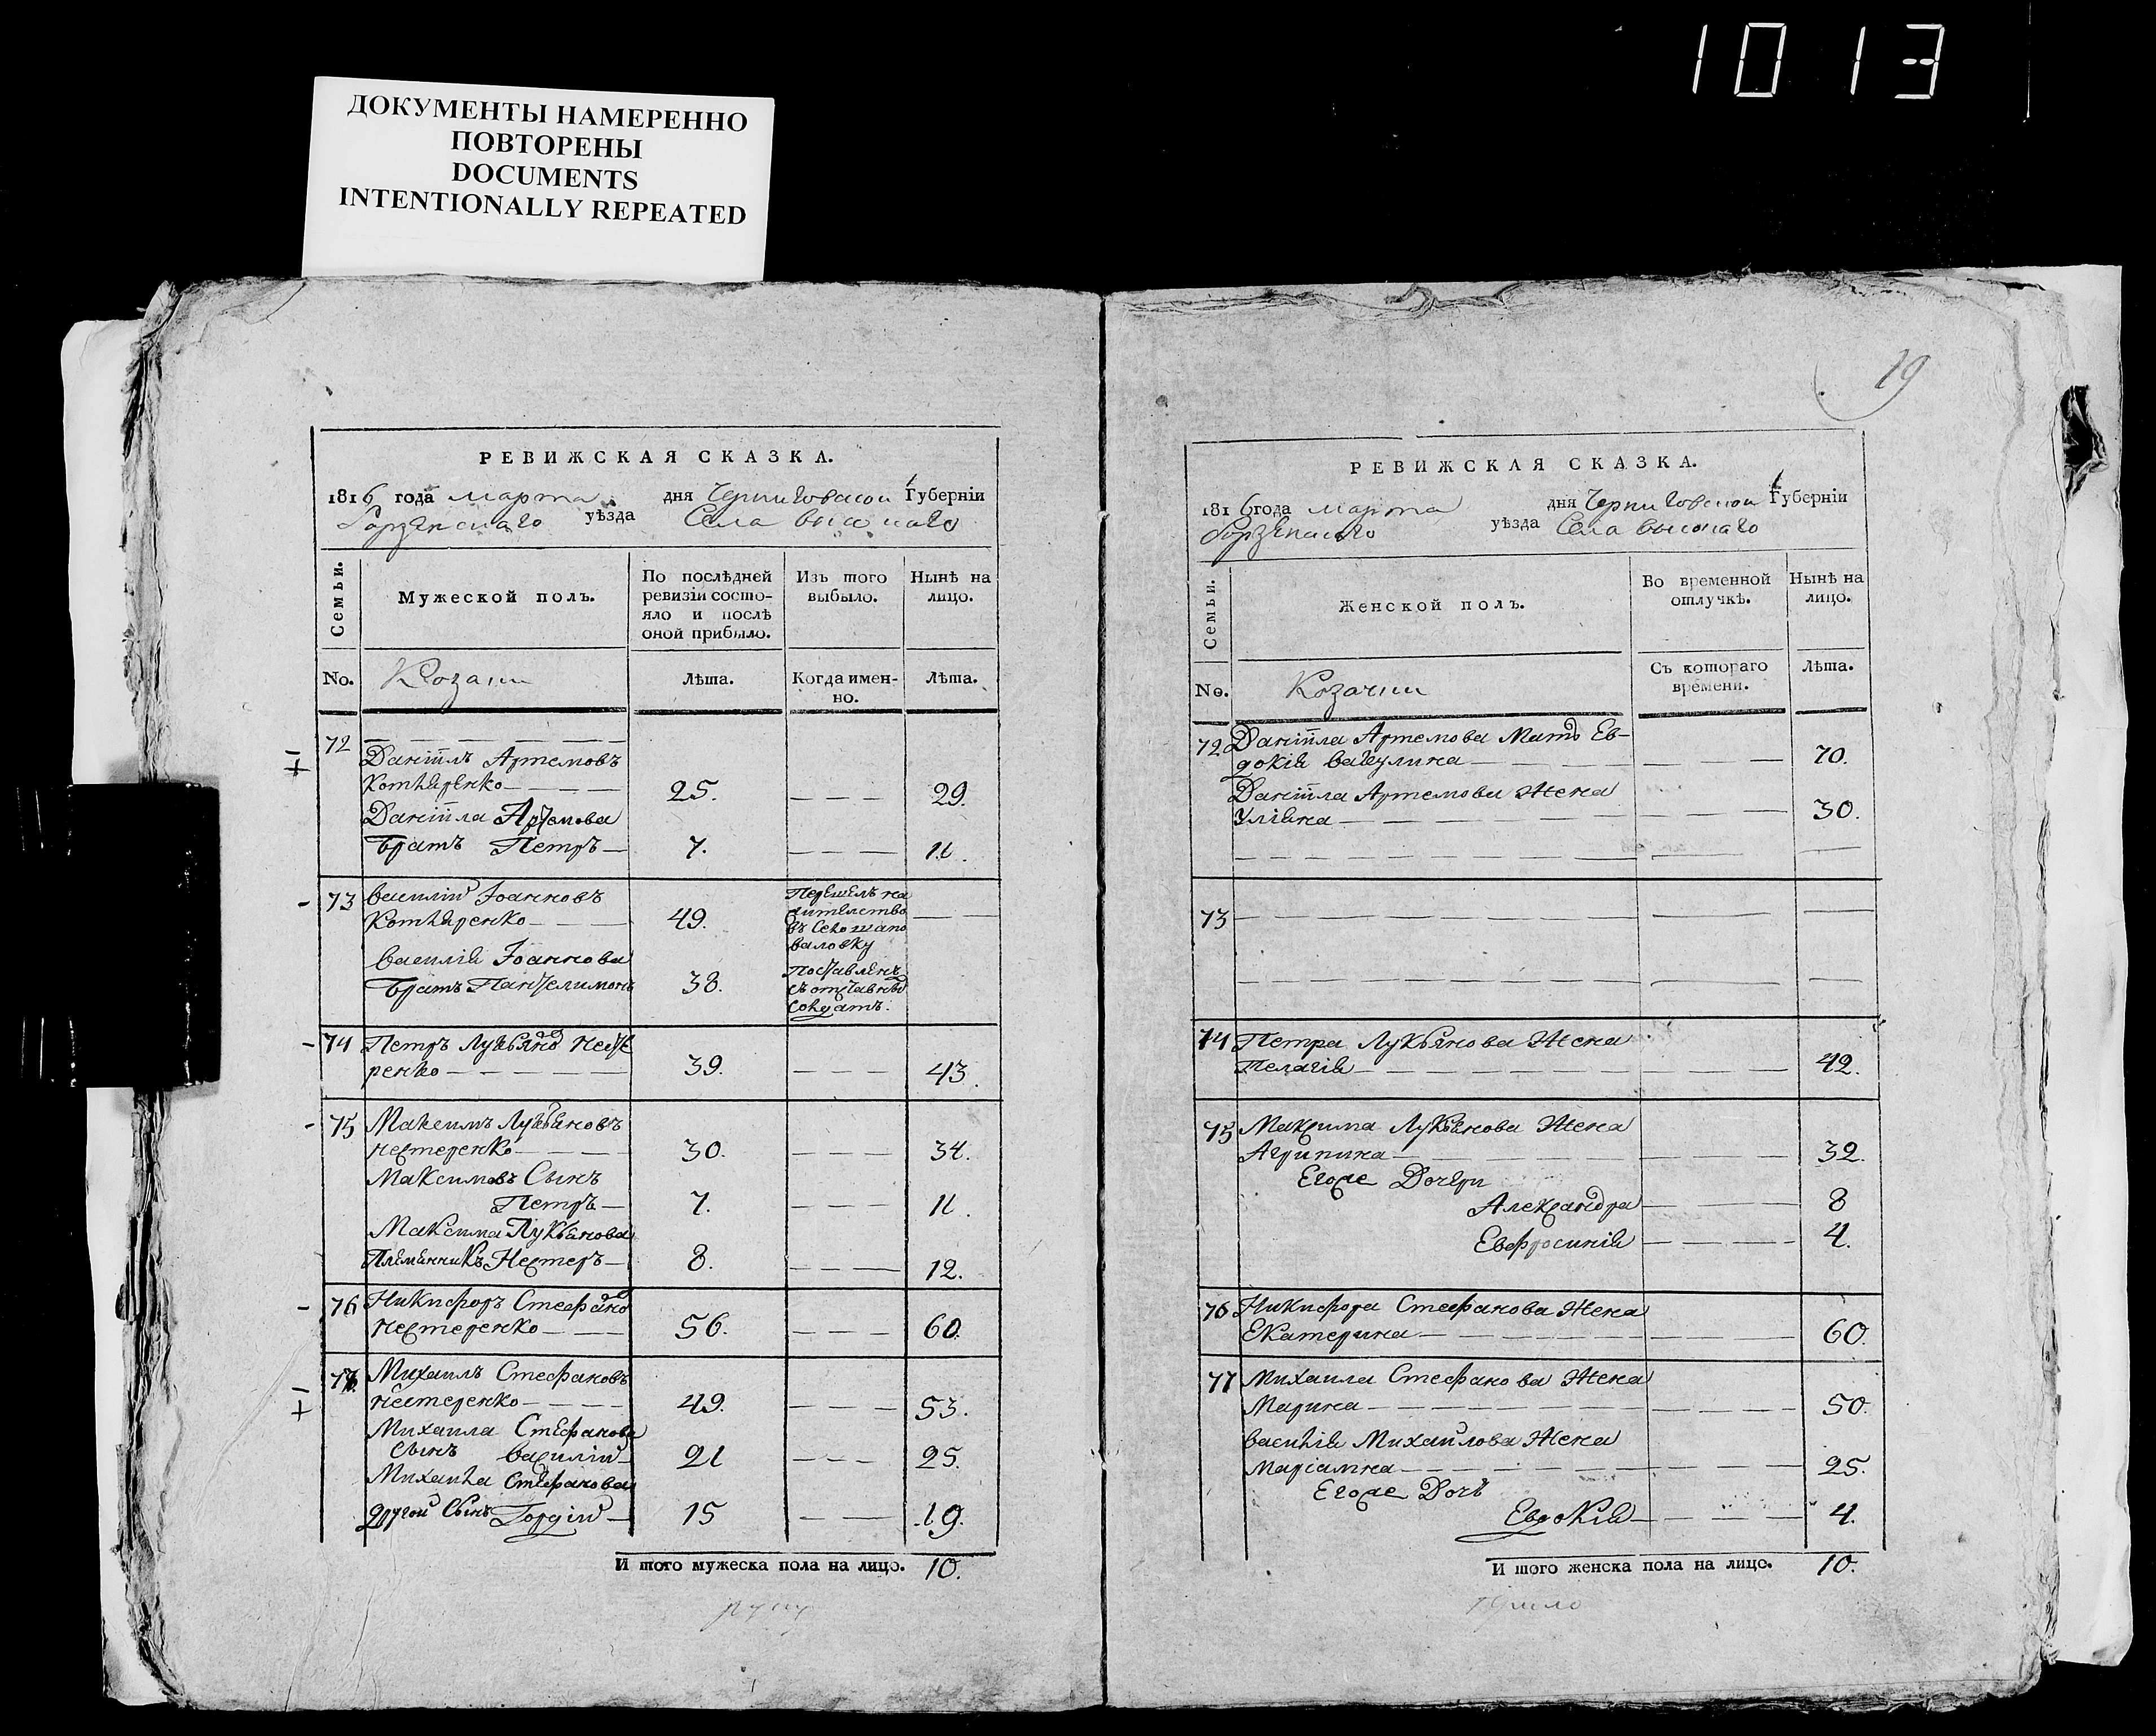 1013
ДОКУМЕНТЫ НАМЕРЕННО
ПОВТОРЕНЫ
DOCUMENTS
INTENTIONALLY REPEATED
РЕВИЖСКАЯ СКАЗКА.
1816 года марта дня Черниговской Губерніи
Борзенскаго уѣзда Села высокаго
Семьи.
Мужеской полъ.
По послѣдней
ревизіи состо-
яло и послѣ
оной прибыло.
Изъ того
выбыло.
Нынѣ на
лицо.
No. Козаки Лѣта. Когда имен-
но. Лѣта.
72
Даніилъ Артемовъ
Котляренко 25. 29.
Даніила Артемова
Братъ Петръ 7. 11.
73 Василій Іоанновъ
Котляренко 49.
Перешелъ на
жителство
въ Село шапо
валовку
Василія Іоаннова
Братъ Пантелимонъ 38.
Поставленъ
въ отставные
Солдатъ.
74 Петръ Лукьяновъ Несте
ренко 39. 43.
75 Максимъ Лукьяновъ
нестеренко 30. 34.
Максимовъ Сынъ
Петръ 7. 11.
Максима Лукьянова
Племянникъ Нестеръ 8. 12.
76 Никифоръ Стефановъ
нестеренко 56. 60.
77. Михаилъ Стефановъ
нестеренко 49. 53.
Михаила Стефанова
Сынъ василій 21 25.
Михаила Стефанова
другой Сынъ Гордій 15 19.
И того мужеска пола на лицо. 10.
руку
19
РЕВИЖСКАЯ СКАЗКА.
1816 года марта дня Черниговской Губерніи
Борзенскаго уѣзда Села высокаго
Семьи.
Женской полъ.
Во временной
отлучкѣ.
Нынѣ на
лицо.
No. Козачки Съ котораго
времени. Лѣта.
72 Даніила Артемова Мать Ев-
докія 70.
Даніила Артемова Жена
Уліяна 30.
73
74 Петра Лукьянова Жена
Пелагія 42.
75 Максима Лукьянова Жена
Агрипина 32.
Егоже Дочери
Александра 8
Евфросинія 4.
76 Никифора Стефанова Жена
Екатерина 60.
77 Михаила Стефанова Жена
Марина 50.
Василія Михайлова Жена
Маріамна 25.
Егоже Дочь
Евдокія 4.
И того женска пола на лицо. 10.